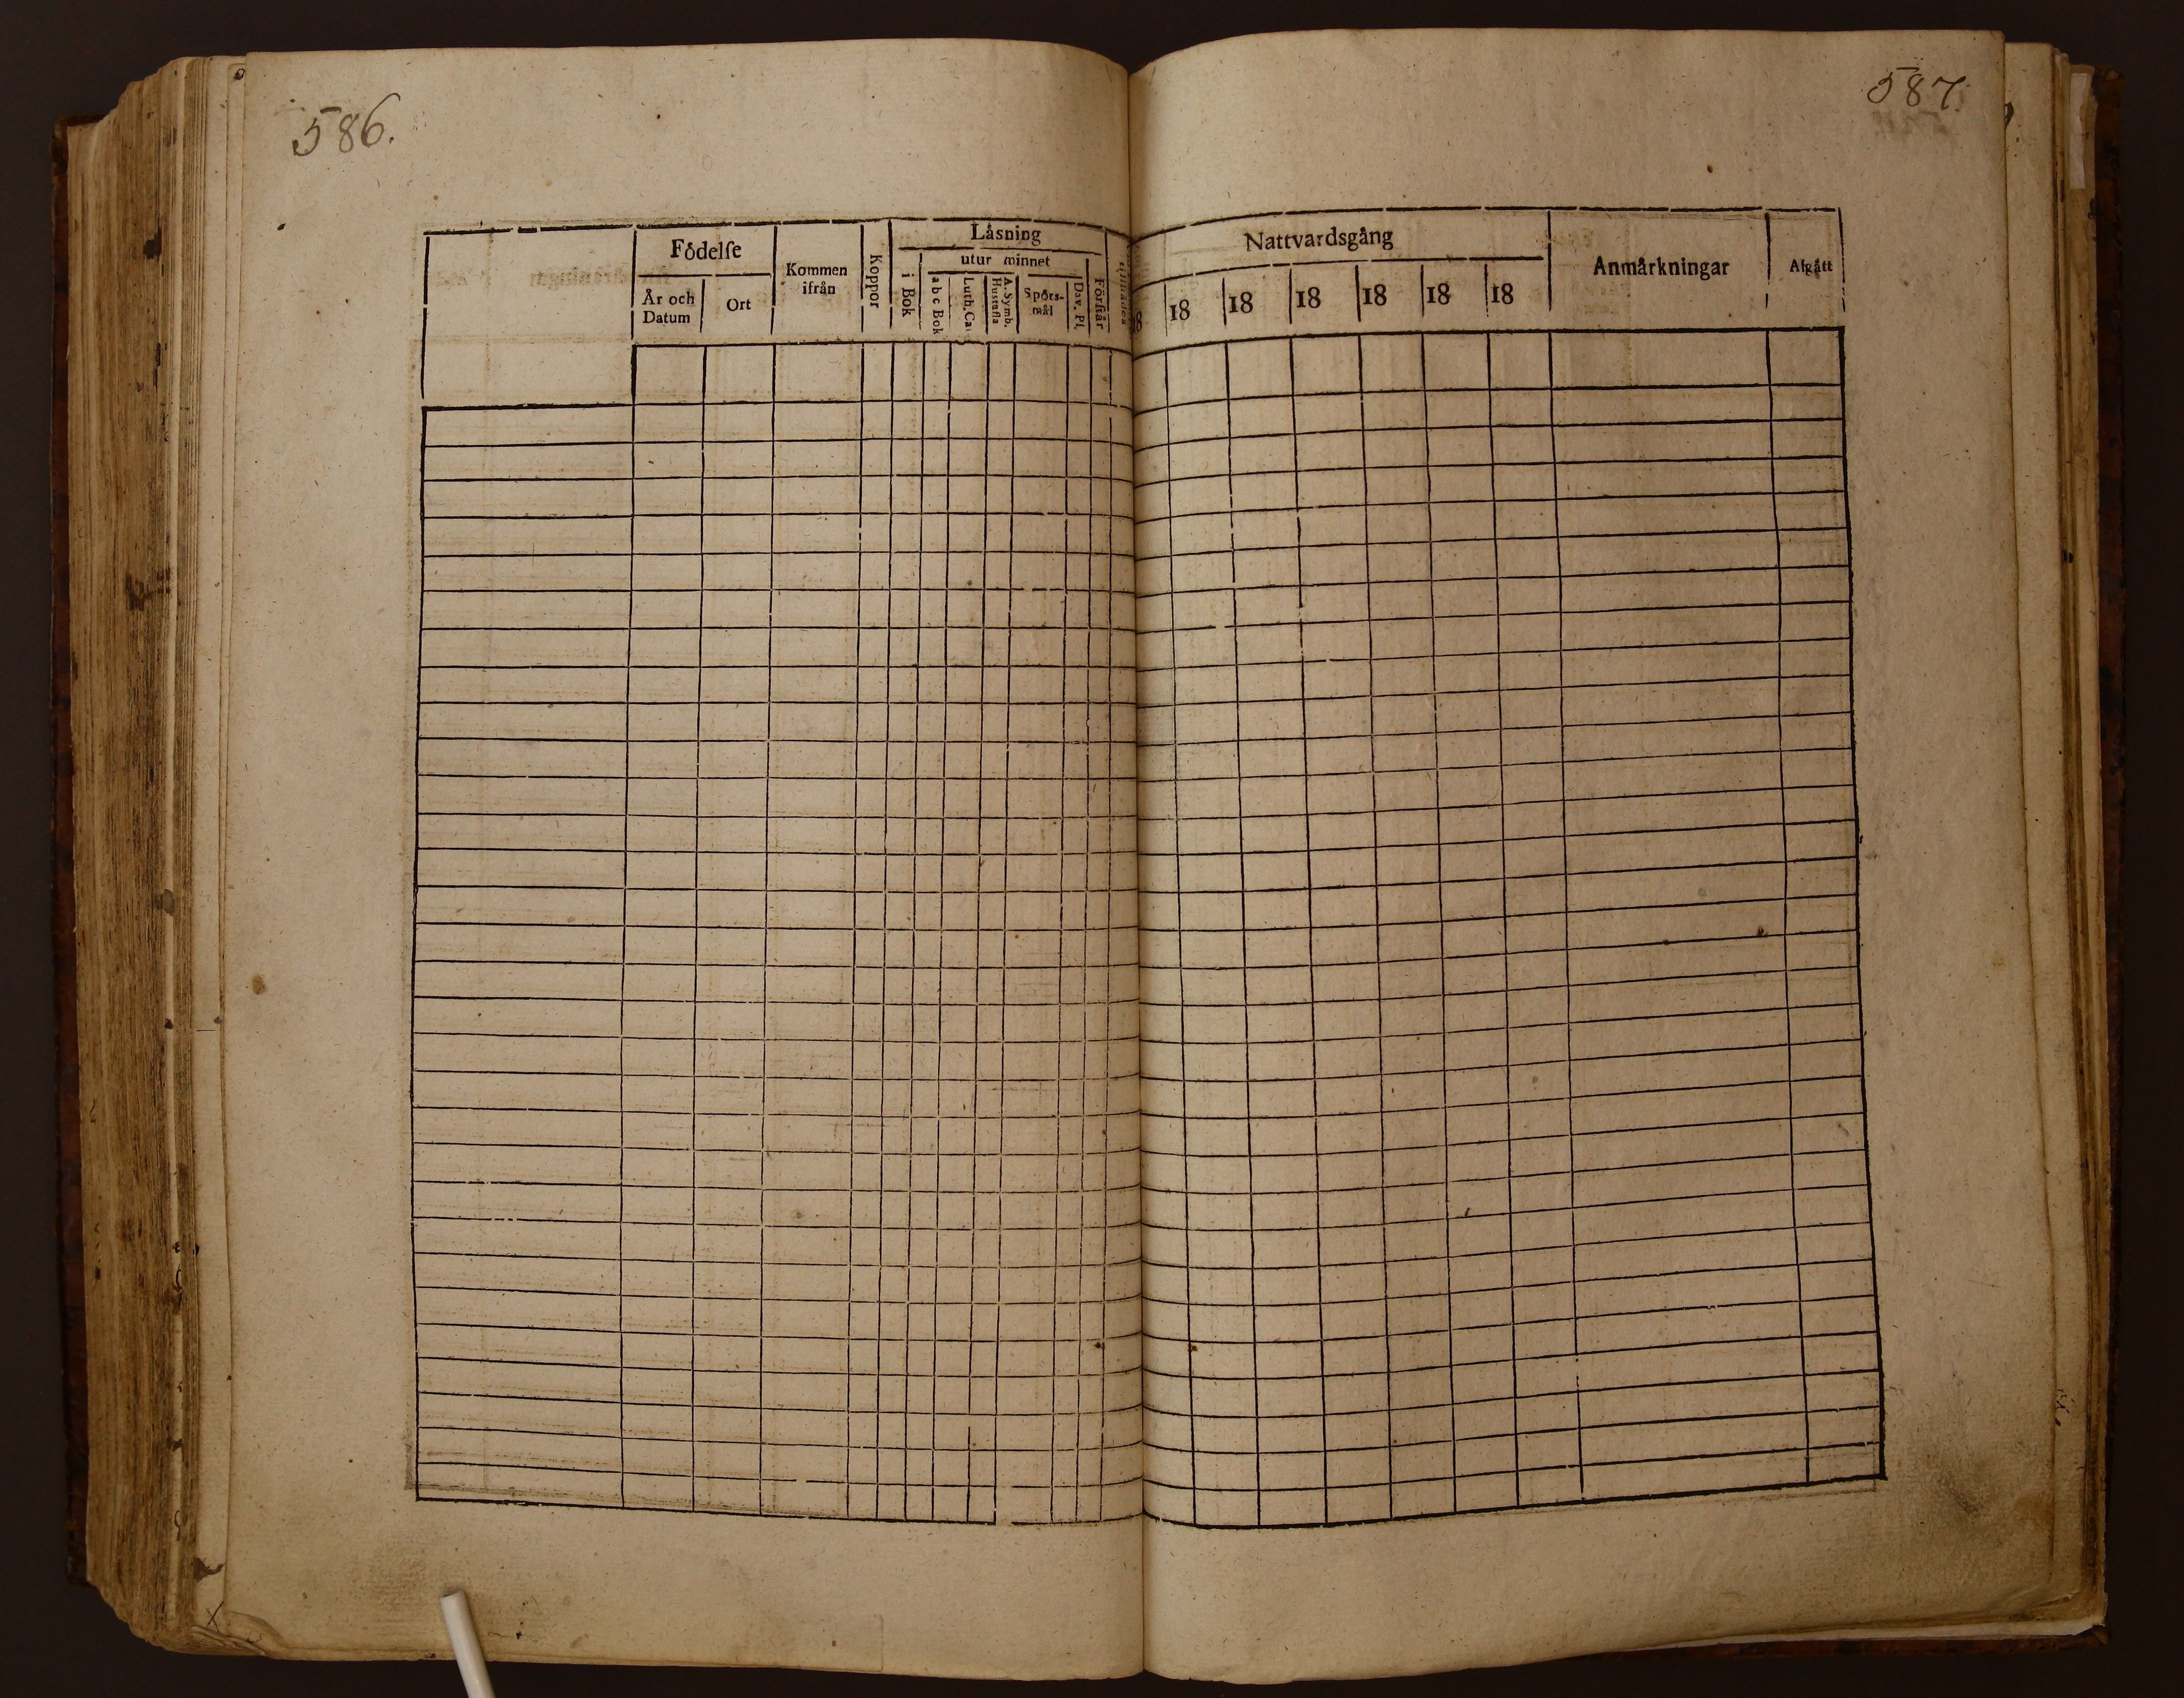 586.
587.
Födelse
Kommen ifrån
Koppor
Läsning
utur minnet
i Bok
a b c Bok
Luth. Ca
A. Symb. Hustafla
Spörs-mål
Dav. Ps.
Förstår
År och Datum
Ort
Nattvardsgång
18
18
18
18
18
18
Anmärkningar
Afgått